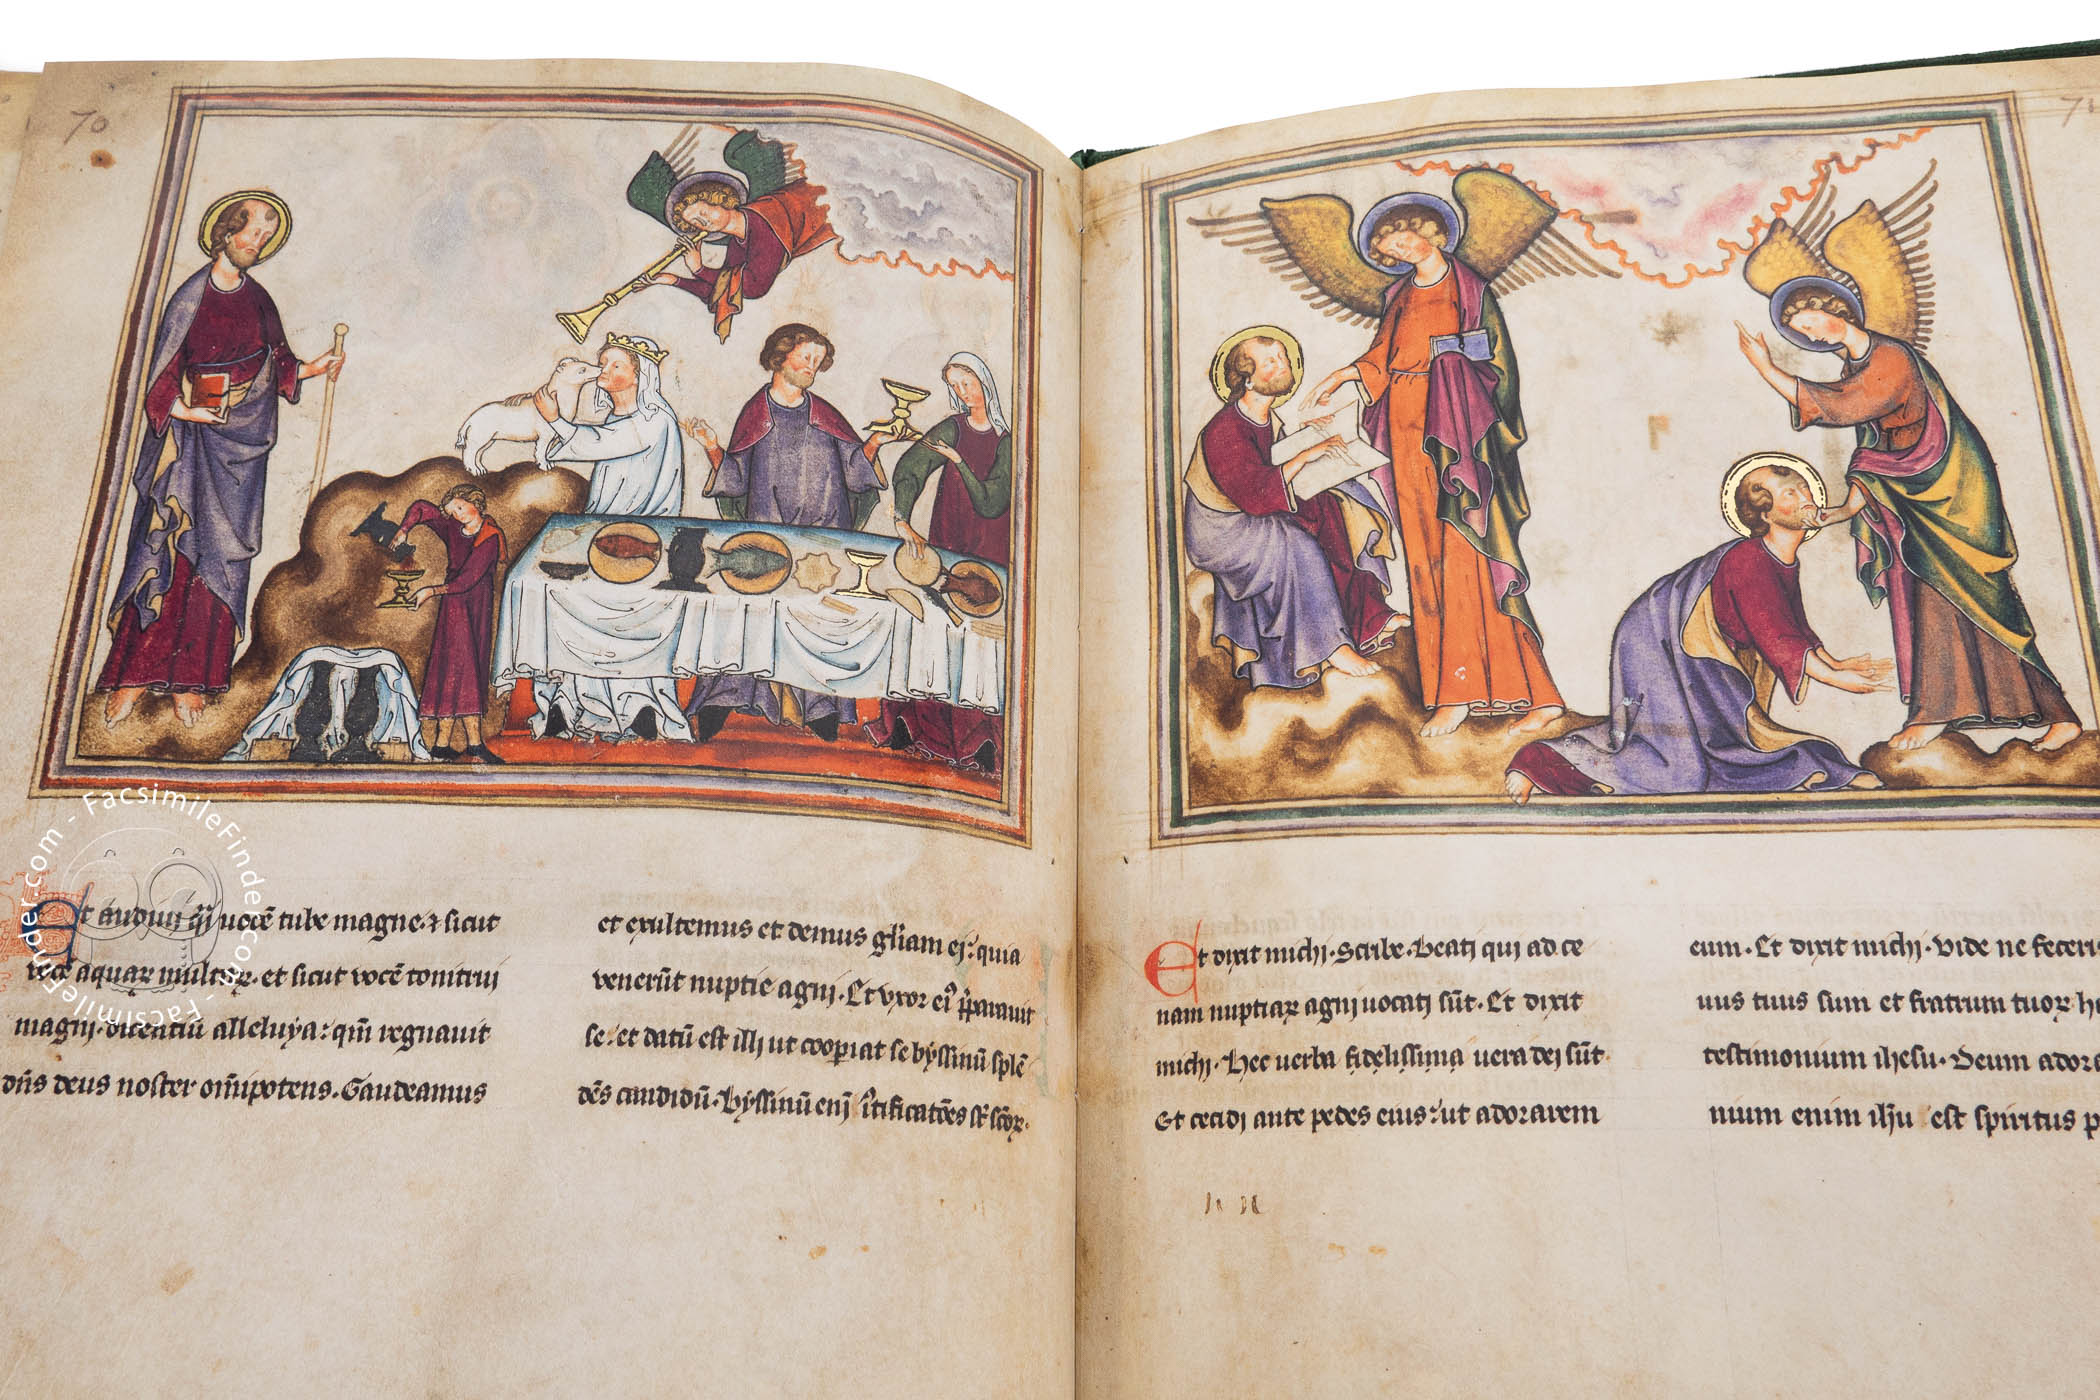 70
Et audivi q̃i uocẽ tube magne. ⁊ sicut
vocẽ aquaꝝ multaꝝ. et sicut vocẽ tonitrui
magnj. dicentiũ alleluya: qm̃ regnauit
dñs deus noster om̃ipotens. Gaudeamus
et exultemus et demus gl̃iam ej: quia
venerũt nuptie agnj. Et vxor ei᾽ p̃parauit
se. et datũ est illj ut cooperiat se byssinũ splẽ
dẽs candidũ. byssinũ enĩ iustificatõẽs st̃ scõꝝ.
71
Et dixit michj. Scribe. beatj quj ad ce
nam nuptiaꝝ agnj uocatj sũt. Et dixit
michj. Hec uerba fidelissima uera dej sũt
Et cecidj ante pedes eius: ut adorarem
eum. Et dixit michj. Vide ne feceris
uus tuus sum et fratrum tuoꝝ
testimonium ihesu. Deum adora
nium enim ihu est spiritus p
FacsimileFinder.com - FacsimileFinder.com